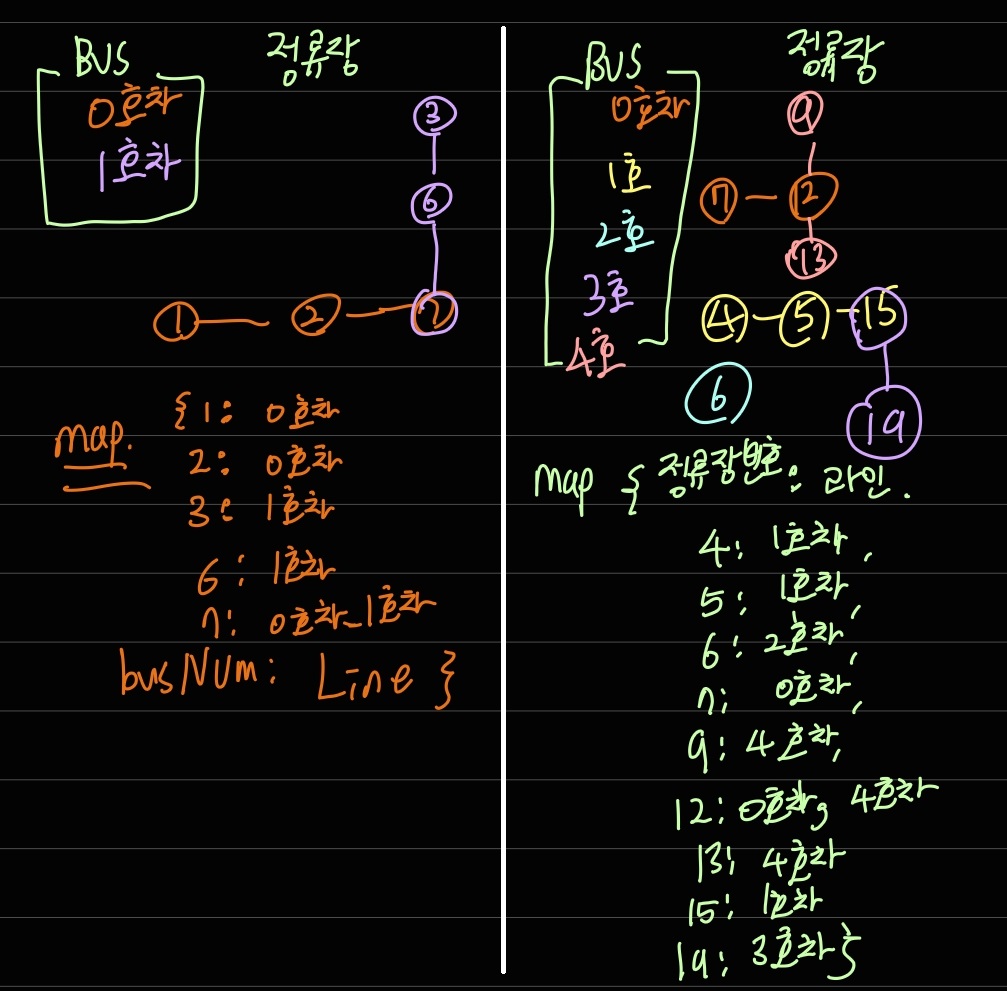 BUS 정류장
0호차
1호차
③
⑥
① ② ⑦
map.
{1: 0호차
2: 0호차
3: 1호차
6: 1호차
7: 0호차_1호차
busNUm: Line }
BUS 정류장
0호차
1호
2호
3호
4호
⑨
⑦ ⑫
⑬
④ ⑤ ⑮
⑥
⑲
map { 정류장번호: 라인.
4: 1호차,
5: 1호차,
6: 2호차,
7: 0호차,
9: 4호차,
12: 0호차, 4호차
13: 4호차
15: 1호차
19: 3호차 }